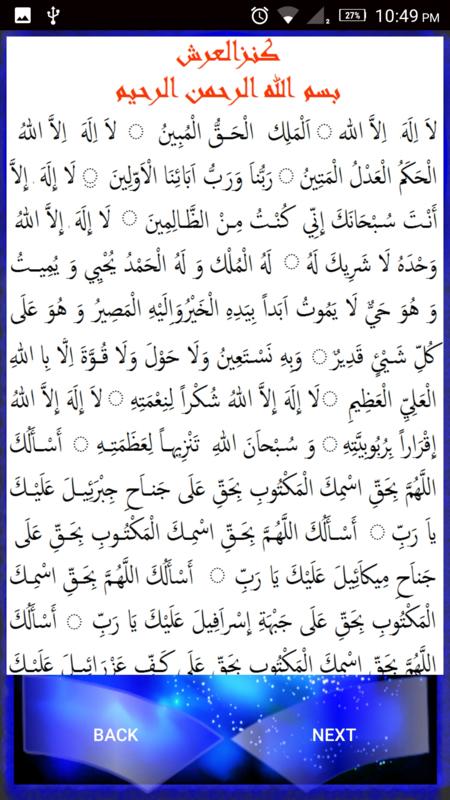 27% 10:49 PM
كنزالعرش
بسم الله الرحمن الرحيم
لاَ اِلَهَ اِلاَّ الله ۝ اَلْمَلِك الْحَـقُّ الْمُبِينُ ۝ لاَ اِلَهَ اِلاَّ اللهُ
الْحَكَمُ الْعَدْلُ الْمَتِينُ ۝ رَبُّنَا وَرَبُّ اَبَائِنَا الْاَوَّلِينَ ۝ لَا إِلَهَ إِلاَّ
أَنْتَ سُبْحَانَكَ إِنِّي كُنْتُ مِـنْ الظَّـالِمِينَ ۝ لَا إِلَهَ إِلاَّ اللهُ
وَحْدَهُ لَا شَرِيكَ لَهُ ۝ لَهُ الْمُلْك وَ لَهُ الْحَمْدُ يُحْيِي وَ يُمِيـتُ
وَ هُوَ حَيٌّ لَا يَمُوتُ اَبَداً بِيَدِهِ الْخَيْرُوَاِلَيْهِ الْمَصِيرُ وَ هُوَ عَلَى
كُلِّ شَيْئٍ قَدِيرٌ۝ وَبِهِ نَسْتَعِينُ وَلَا حَوْلَ وَلَا قُـوَّةَ اِلَّا بِا اللهِ
الْعَلِيِّ الْعَظِيمِ ۝لَا إِلَهَ إِلاَّ اللهُ شُكْراً لِنِعْمَتِهِ ۝ لاَ إِلَهَ إِلاَّ اللهُ
إِقْرَاراً بِرُبُوبِيَّتِهِ ۝ وَ سُبْحَانَ اللهِ تَنْزِيهـاً لِعَظَمَتِـهِ ۝ أَسْـأَلُكَ
اللَّهُمَّ بِحَقِّ اسْمِكَ الْمَكْتُوبِ بِحَقِّ عَلَى جَنـاَحِ جِبْرَئِيـلَ عَلَيْـكَ
ياَ رَبِّ ۝ أَسْـأَلُكَ اللَّهُمَّ بِحَقِّ اسْمِـكَ الْمَكْتُـوبِ بِحَـقِّ عَلَى
جَنَاحِ مِيكَائِيلَ عَلَيْكَ يَا رَبِّ ۝ أَسْأَلُكَ اللَّهُمَّ بِحَـقِّ اسْمِـكَ
الْمَكْتُوبِ بِحَقِّ عَلَى جَبْهَةِ إِسْرَافِيلَ عَلَيْكَ يَا رَبِّ ۝ أَسْـأَلُكَ
اللَّهُمَّ بِحَقِّ اسْمِكَ الْمَكْتُوبِ بِحَقِّ عَلَى كَـفِّ عَزْرَائِيـلَ عَلَيْـكَ
BACK NEXT